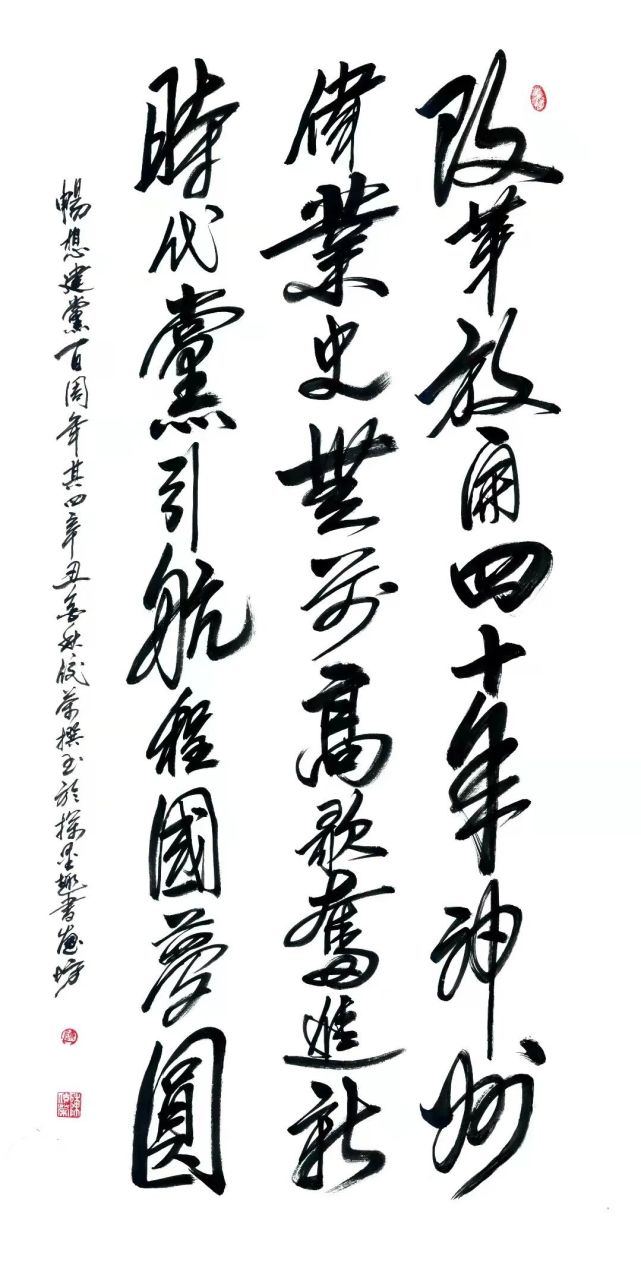 改革放开四十年神州
伟業史無前高歌奮進新
時代黨引航程國夢圓
暢想建黨百周年其四辛丑年秋 榮撰書於探墨趣書畫坊